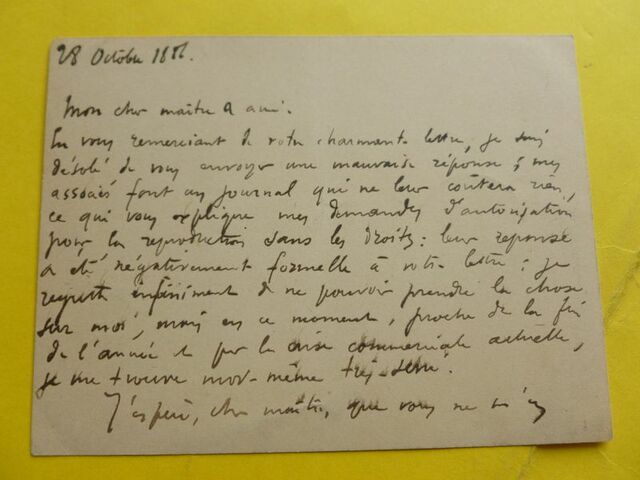 28 Octobre 1886.
Mon cher maître & ami.
En vous remerciant de votre charmante lettre, je suis
désolé de vous envoyer une mauvaise réponse ; mes
associés font un journal qui ne leur coûtera rien,
ce qui vous explique mes demandes d'autorisation
pour la reproduction sans les droits : leur réponse
a été négativement formelle à votre lettre ; je
regrette infiniment de ne pouvoir prendre la chose
sur moi, mais en ce moment, proche de la fin
de l'année & par la crise commerciale actuelle,
je me trouve moi-même très-serré.
J'espère, cher maître, que vous ne m'en